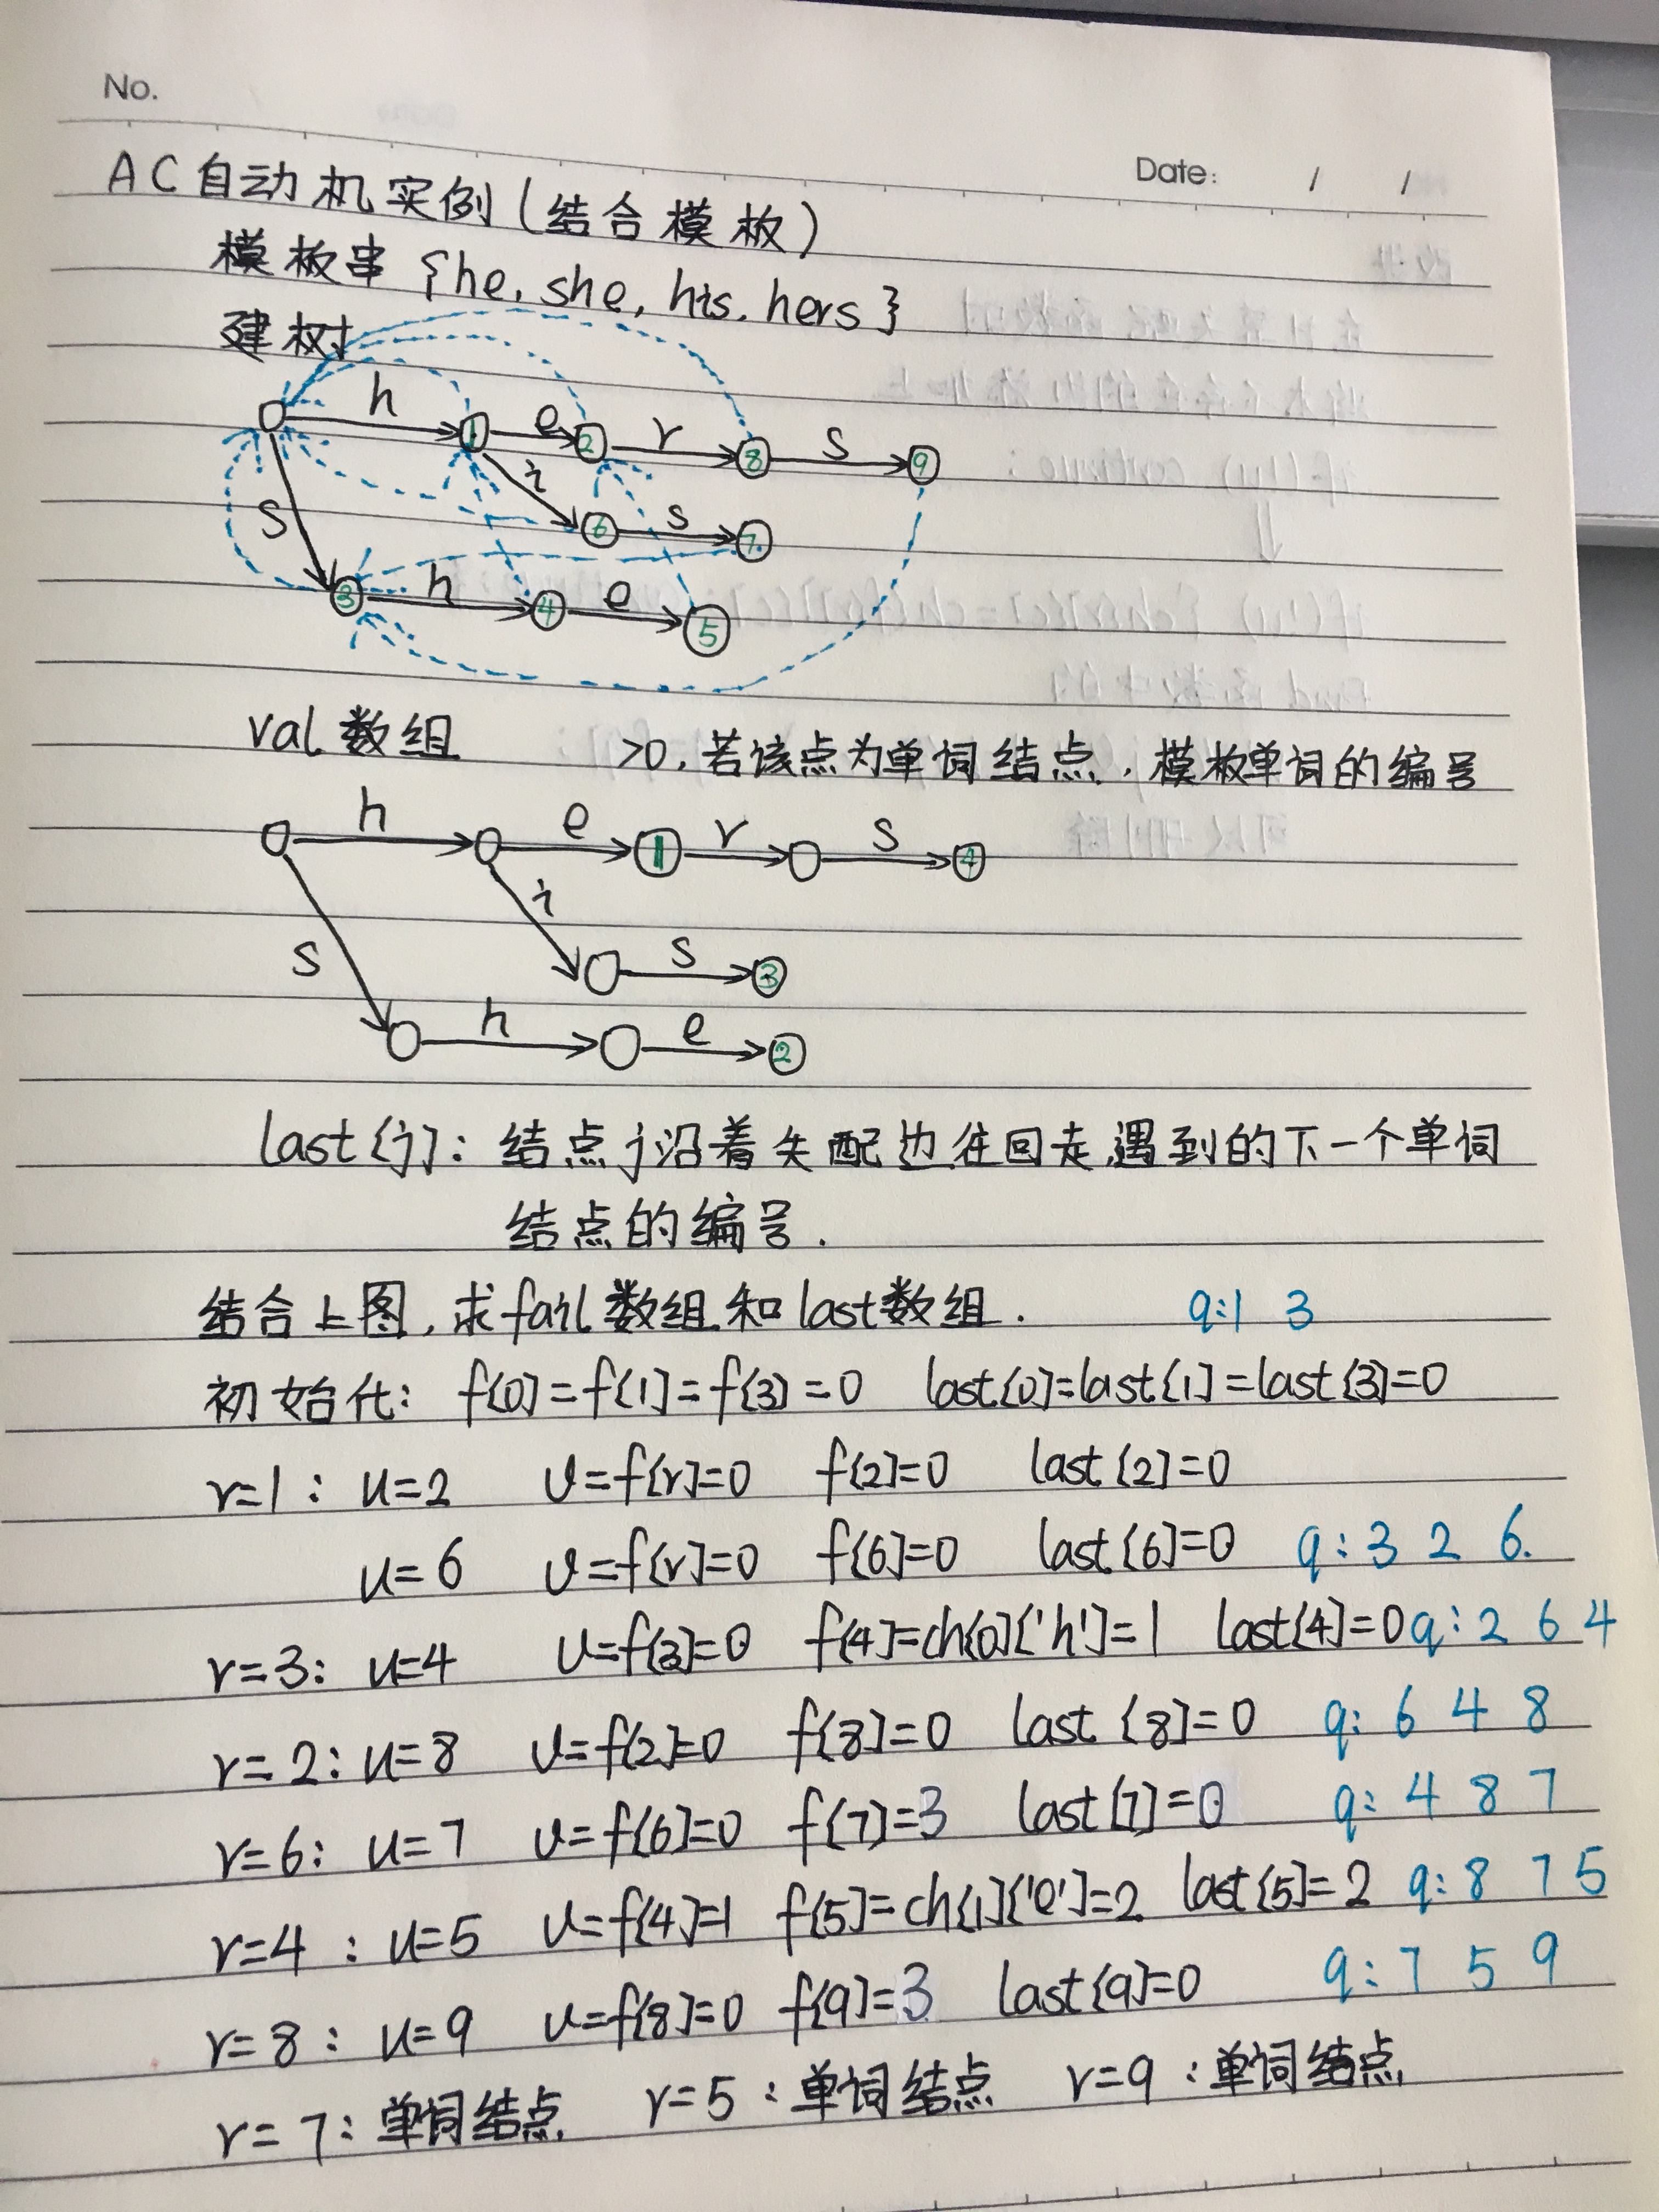 No.
Date: / /
AC自动机实例(结合模板)
模板串 {he, she, his, hers}
建树
h e r s
1 2 8 9
i s
6 7
s h e
3 4 5
val数组 >0,若该点为单词结点,模板单词的编号
h e r s
1 4
i s
3
s h e
2
last[j]: 结点j沿着失配边往回走,遇到的下一个单词
结点的编号.
结合上图,求fail数组和last数组. q:1 3
初始化: f[0]=f[1]=f[3]=0 last[0]=last[1]=last[3]=0
r=1: u=2 v=f[r]=0 f[2]=0 last[2]=0
u=6 v=f[r]=0 f[6]=0 last[6]=0 q:3 2 6.
r=3: u=4 v=f[3]=0 f[4]=ch[0]['h']=1 last[4]=0 q:2 6 4
r=2: u=8 v=f[2]=0 f[8]=0 last[8]=0 q: 6 4 8
r=6: u=7 v=f[6]=0 f[7]=3 last[7]=0 q: 4 8 7
r=4: u=5 v=f[4]=1 f[5]=ch[1]['e']=2 last[5]=2 q:8 7 5
r=8: u=9 v=f[8]=0 f[9]=3 last[9]=0 q:7 5 9
r=7:单词结点 r=5:单词结点 r=9:单词结点